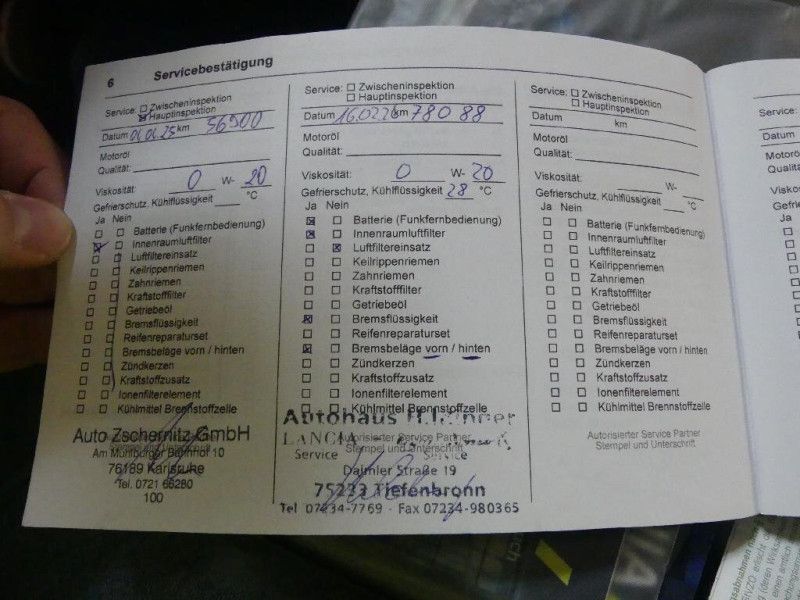 6 Servicebestätigung
Service: Zwischeninspektion
Hauptinspektion
Datum 04.04.25 km 56500
Motoröl
Qualität:
Viskosität: 0 W- 20
Gefrierschutz, Kühlflüssigkeit °C
Ja Nein
Batterie (Funkfernbedienung)
Innenraumluftfilter
Luftfiltereinsatz
Keilrippenriemen
Zahnriemen
Kraftstofffilter
Getriebeöl
Bremsflüssigkeit
Reifenreparaturset
Bremsbeläge vorn / hinten
Zündkerzen
Kraftstoffzusatz
Ionenfilterelement
Kühlmittel Brennstoffzelle
Auto Zschernitz GmbH
Am Mühlburger Bahnhof 10
76189 Karlsruhe
Tel. 0721 66280
100
Service: Zwischeninspektion
Hauptinspektion
Datum 16.02.26 km 78088
Motoröl
Qualität:
Viskosität: 0 W- 20
Gefrierschutz, Kühlflüssigkeit 28 °C
Ja Nein
Batterie (Funkfernbedienung)
Innenraumluftfilter
Luftfiltereinsatz
Keilrippenriemen
Zahnriemen
Kraftstofffilter
Getriebeöl
Bremsflüssigkeit
Reifenreparaturset
Bremsbeläge vorn / hinten
Zündkerzen
Kraftstoffzusatz
Ionenfilterelement
Kühlmittel Brennstoffzelle
Autohaus
LANCIA
Autorisierter Service Partner
Service Service
Stempel und Unterschrift
Daimler Straße 19
75233 Tiefenbronn
Tel 07234-7769 - Fax 07234-980365
Service: Zwischeninspektion
Hauptinspektion
Datum km
Motoröl
Qualität:
Viskosität: W-
Gefrierschutz, Kühlflüssigkeit °C
Ja Nein
Batterie (Funkfernbedienung)
Innenraumluftfilter
Luftfiltereinsatz
Keilrippenriemen
Zahnriemen
Kraftstofffilter
Getriebeöl
Bremsflüssigkeit
Reifenreparaturset
Bremsbeläge vorn / hinten
Zündkerzen
Kraftstoffzusatz
Ionenfilterelement
Kühlmittel Brennstoffzelle
Autorisierter Service Partner
Stempel und Unterschrift
Service:
Datum
Ja